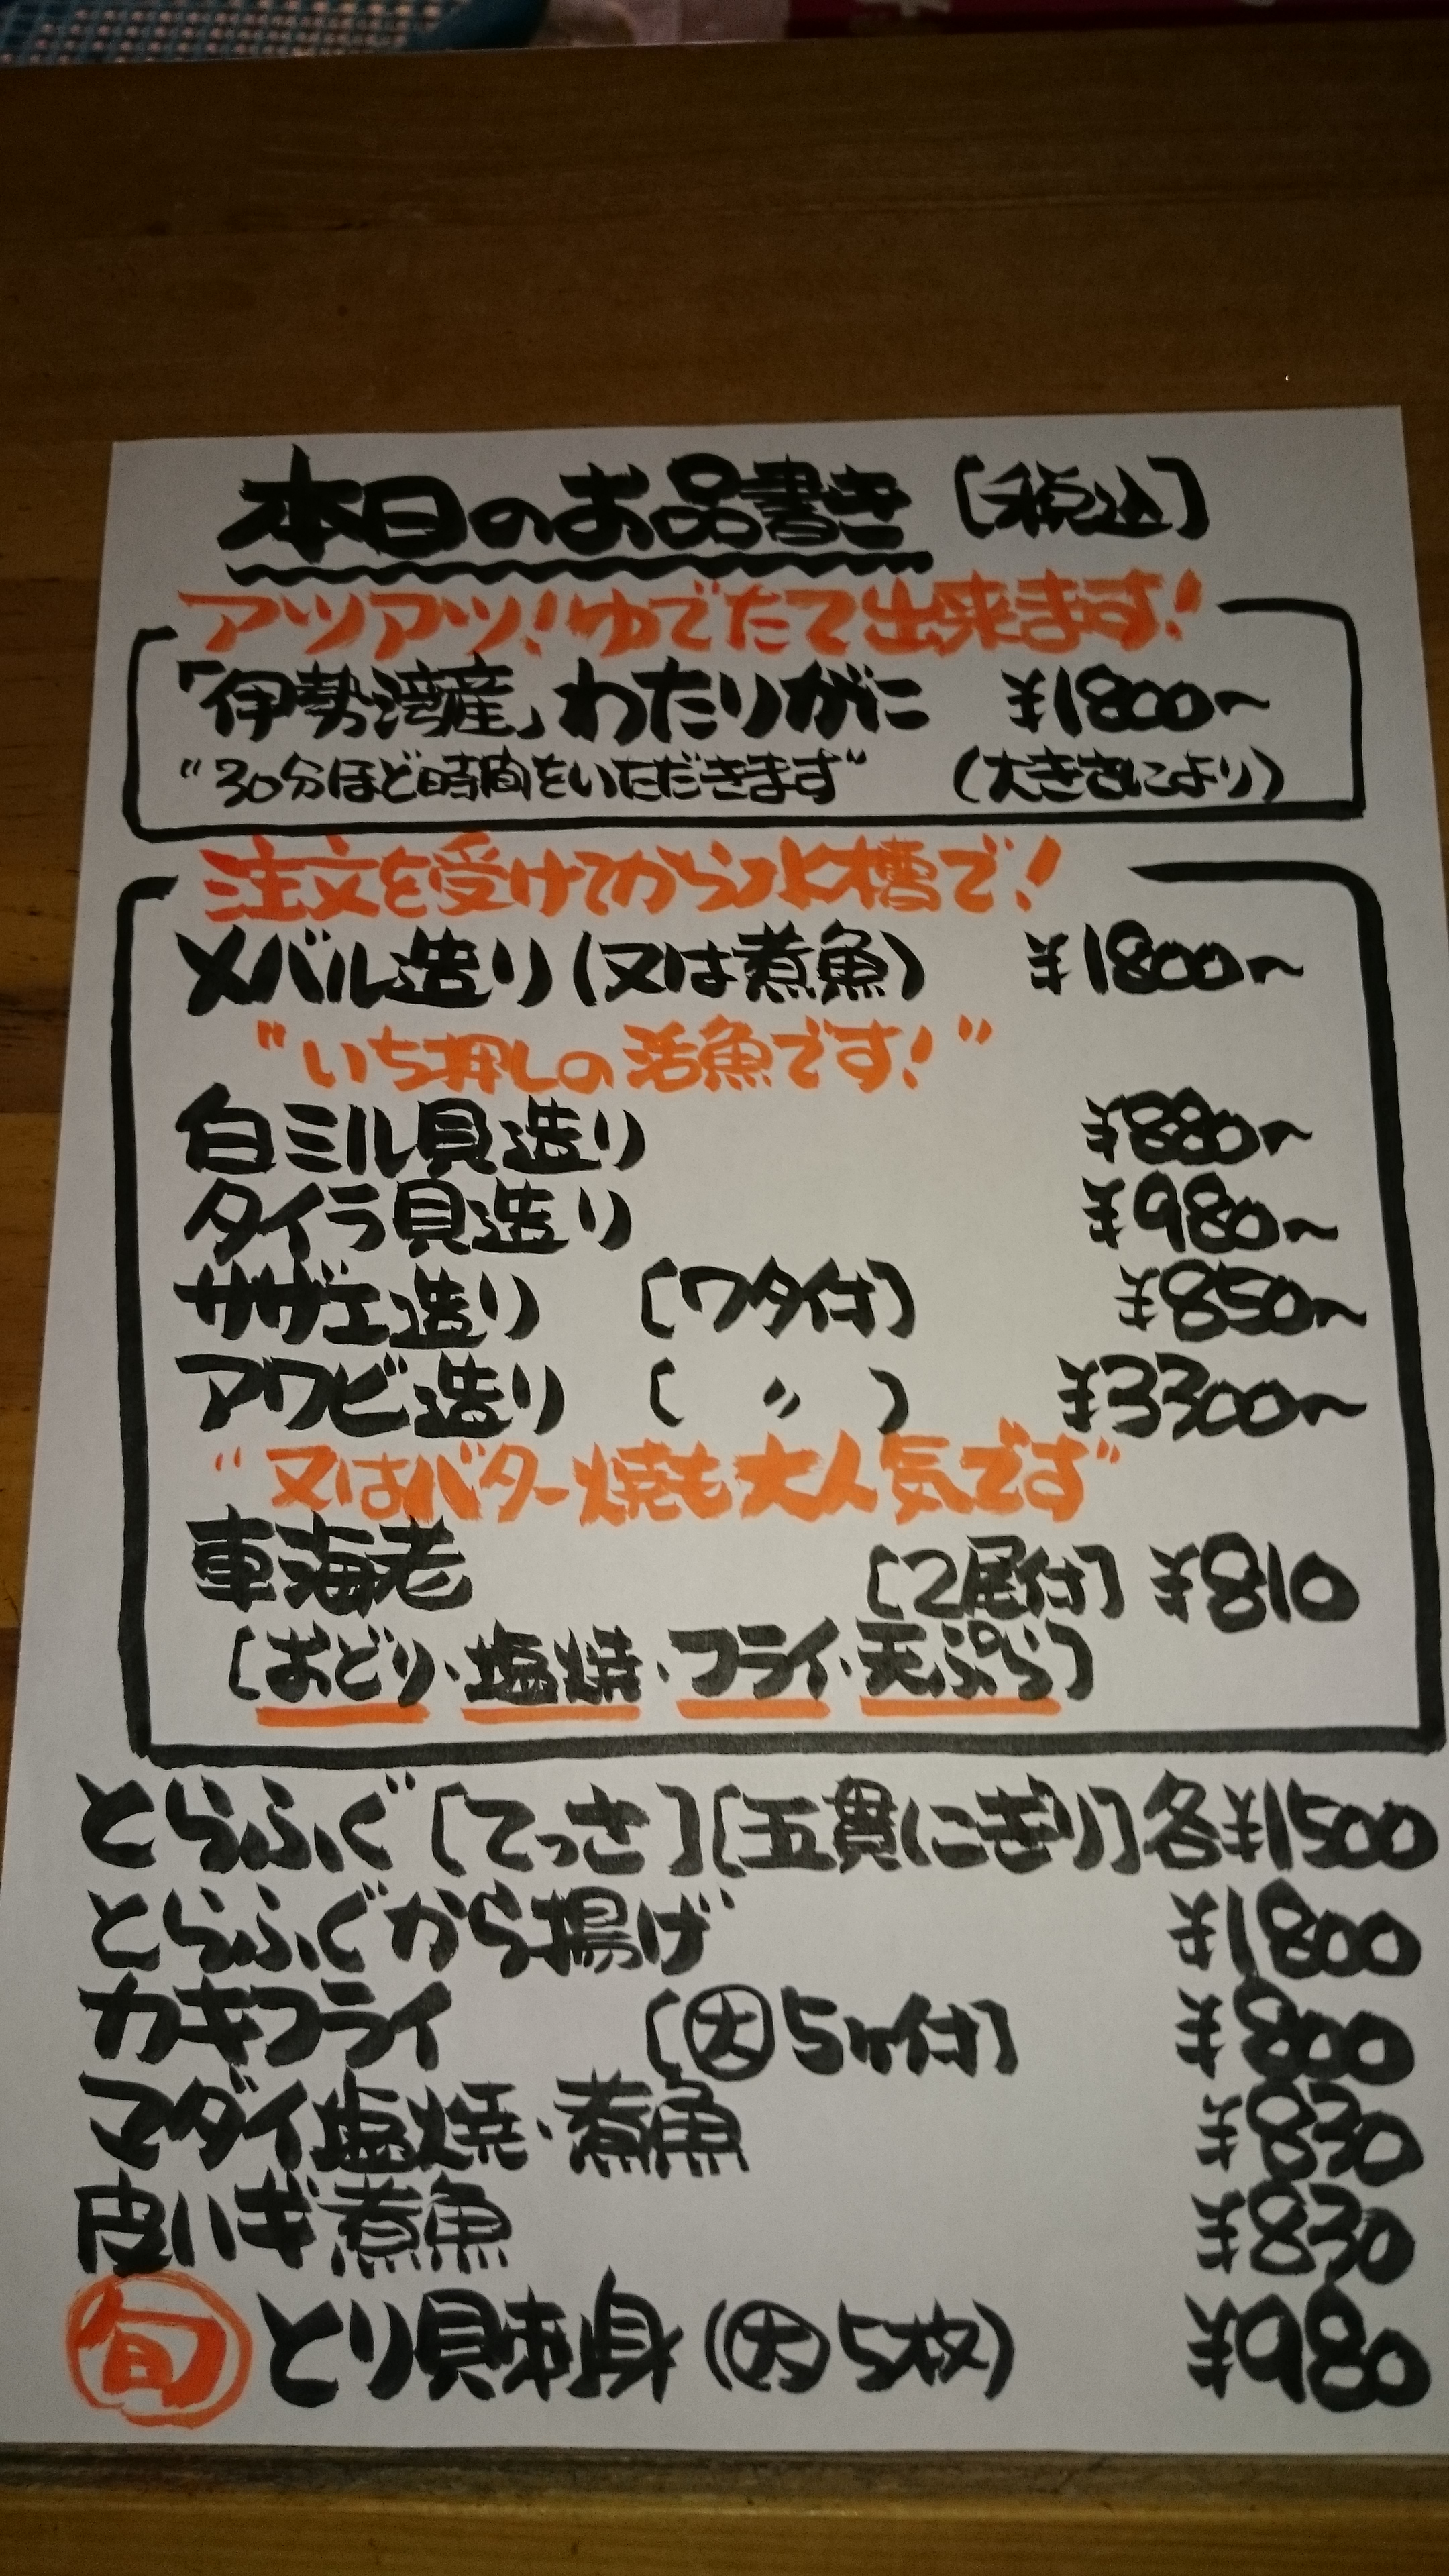 本日のお品書き [税込]
アツアツ!ゆでたて出来ます!
「伊勢湾産」わたりがに ¥1800~
"30分ほど時間をいただきます" (大きさにより)
注文を受けてから水槽で!
メバル造り(又は煮魚) ¥1800~
"いち押しの活魚です!"
白ミル貝造り ¥880~
タイラ貝造り ¥980~
サザエ造り [ワタ付] ¥850~
アワビ造り [ 〃 ] ¥3300~
"又はバター焼も大人気です"
車海老 [2尾付] ¥810
[おどり・塩焼・フライ・天ぷら]
とらふぐ[てっさ][五貫にぎり]各¥1500
とらふぐから揚げ ¥1800
カキフライ [大5ヶ付] ¥800
マダイ塩焼・煮魚 ¥830
皮ハギ煮魚 ¥830
旬 とり貝刺身(大5枚) ¥980